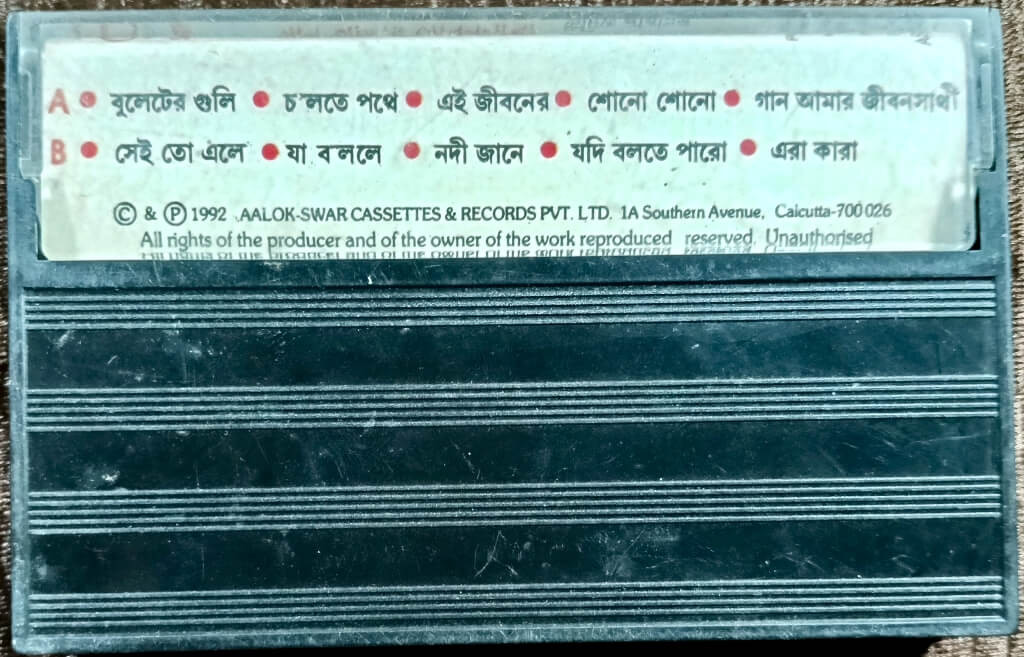 A • বুলেটের গুলি • চ'লতে পথে • এই জীবনের • শোনো শোনো • গান আমার জীবনসাথী
B • সেই তো এলে • যা ব'ললে • নদী জানে • যদি বলতে পারো • এরা কারা
© & ℗ 1992 AALOK-SWAR CASSETTES & RECORDS PVT. LTD. 1A Southern Avenue, Calcutta-700 026
All rights of the producer and of the owner of the work reproduced reserved. Unauthorised